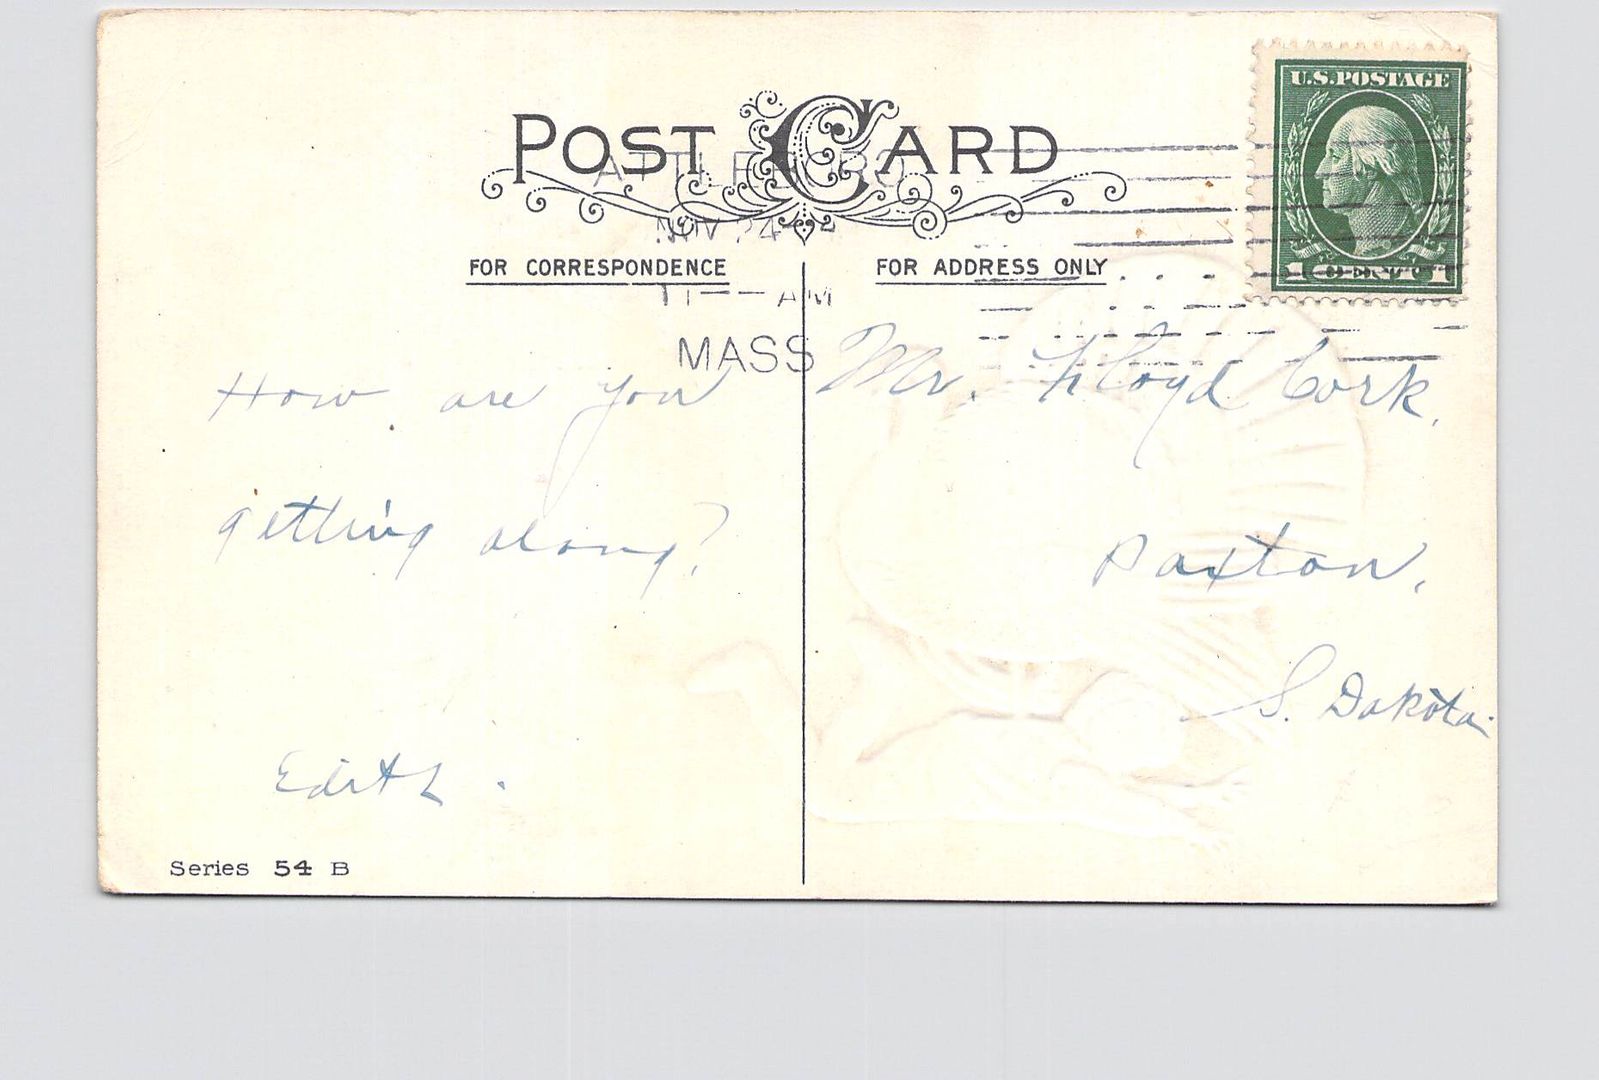 POST CARD
U.S.POSTAGE
ATTLEBORO
NOV 24
11 -- AM
MASS
1 CENT 1
FOR CORRESPONDENCE
FOR ADDRESS ONLY
How are you
getting along?
Edith.
Mr. Floyd Cork,
Paxton,
S. Dakota.
Series 54 B